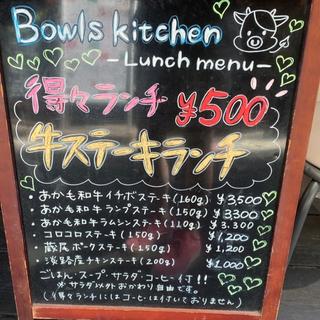 Bowls kitchen
-Lunch menu-
得々ランチ ¥500
牛ステーキランチ
・あか毛和牛イチボステーキ(160g) ¥3500
・あか毛和牛ランプステーキ(150g) ¥3300
・あか毛和牛ラムシンステーキ(110g) ¥3.300
・コロコロステーキ(150g) ¥1,200
・蔵尾ポークステーキ(150g) ¥1,200
・淡路産チキンステーキ(200g) ¥1,000
ごはん・スープ・サラダ・コーヒー付!!
※サラダ以外おかわり自由です。
(得々ランチにはコーヒーは付いておりません)